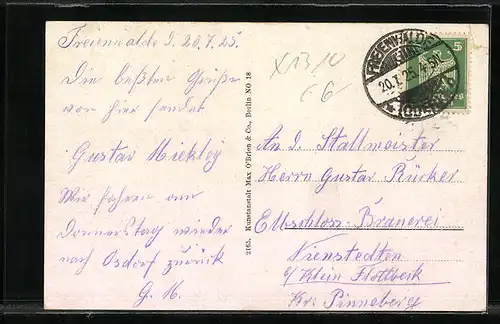 Freienwalde d. 20.7.25.
Die beßten Grüße
von hier sendet
Gustav Mickley
Wir fahren am
Donnerstag wieder
nach Osdorf zurück
G. M.
2165. Kunstanstalt Max O'Brien & Co., Berlin NO 18
X 13,10
66
FREIENWALDE
20.7.25. 4-5N
(ODER)
5
An d. Stallmeister
Herrn Gustav Rücker
Elbschloss-Brauerei
Nienstedten
b/ Klein Flottbeck
Kr. Pinneberg